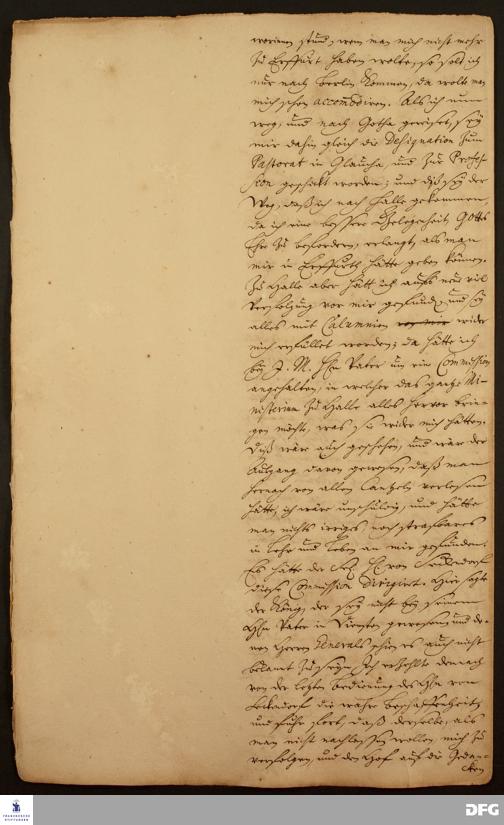 worinnen stund, wenn man mich nicht mehr
zu Erffurt haben wolte, so solt ich
nur nach Berlin kommen, da wolte man
mich schon accomodiren. Als ich nun
weg, und nach Gotha gereiset, sey
mir dahin gleich die Designation zum
Pastorat in Glaucha, und zur Profes-
sion geschickt worden; und diß sey der
Weg, daß ich nach Halle gekommen,
da ich eine bessere Gelegenheit Gottes
Ehre zu befordern, erlangt, als man
mir in Erffurth hätte geben können.
Zu Halle aber hätt ich aufs neue viel
Verfolgung vor mir gefunden und sey
alles mit Calumnien wider
mich erfüllet worden; da hätte ich
bey J. M. Hn Vater um eine Commission
angehalten, in welcher das gantze Mi-
nisterium zu Halle alles hervor brin-
gen möchte, was sie wider mich hätten.
Diß wäre auch geschehen, und wär der
Außgang davon gewesen, daß man
hernach von allen Cantzeln verlesen
hätte, ich wäre unschuldig, und hätte
man nichts irriges noch strafbares
in Lehr und Leben an mir gefunden.
Es hätte der Sel. H. von Seckendorf
diese Commission dirigiret. Hier sagte
der König, der sey nicht bey seinem
Hn Vater in Diensten gewesen, und de-
nen Herren Generals schien es auch nicht
bekant zu seyn. Ich erzehlte demnach
von der letzten Bedienung des Hn von
Seckendorf die wahre beschaffenheit,
und fuhr fort, daß derselbe, als
man nicht nachlassen wollen, mich zu
verfolgen, und den Hof auf die Gedan-
cken
FRANCKESCHE
STIFTUNGEN
DFG